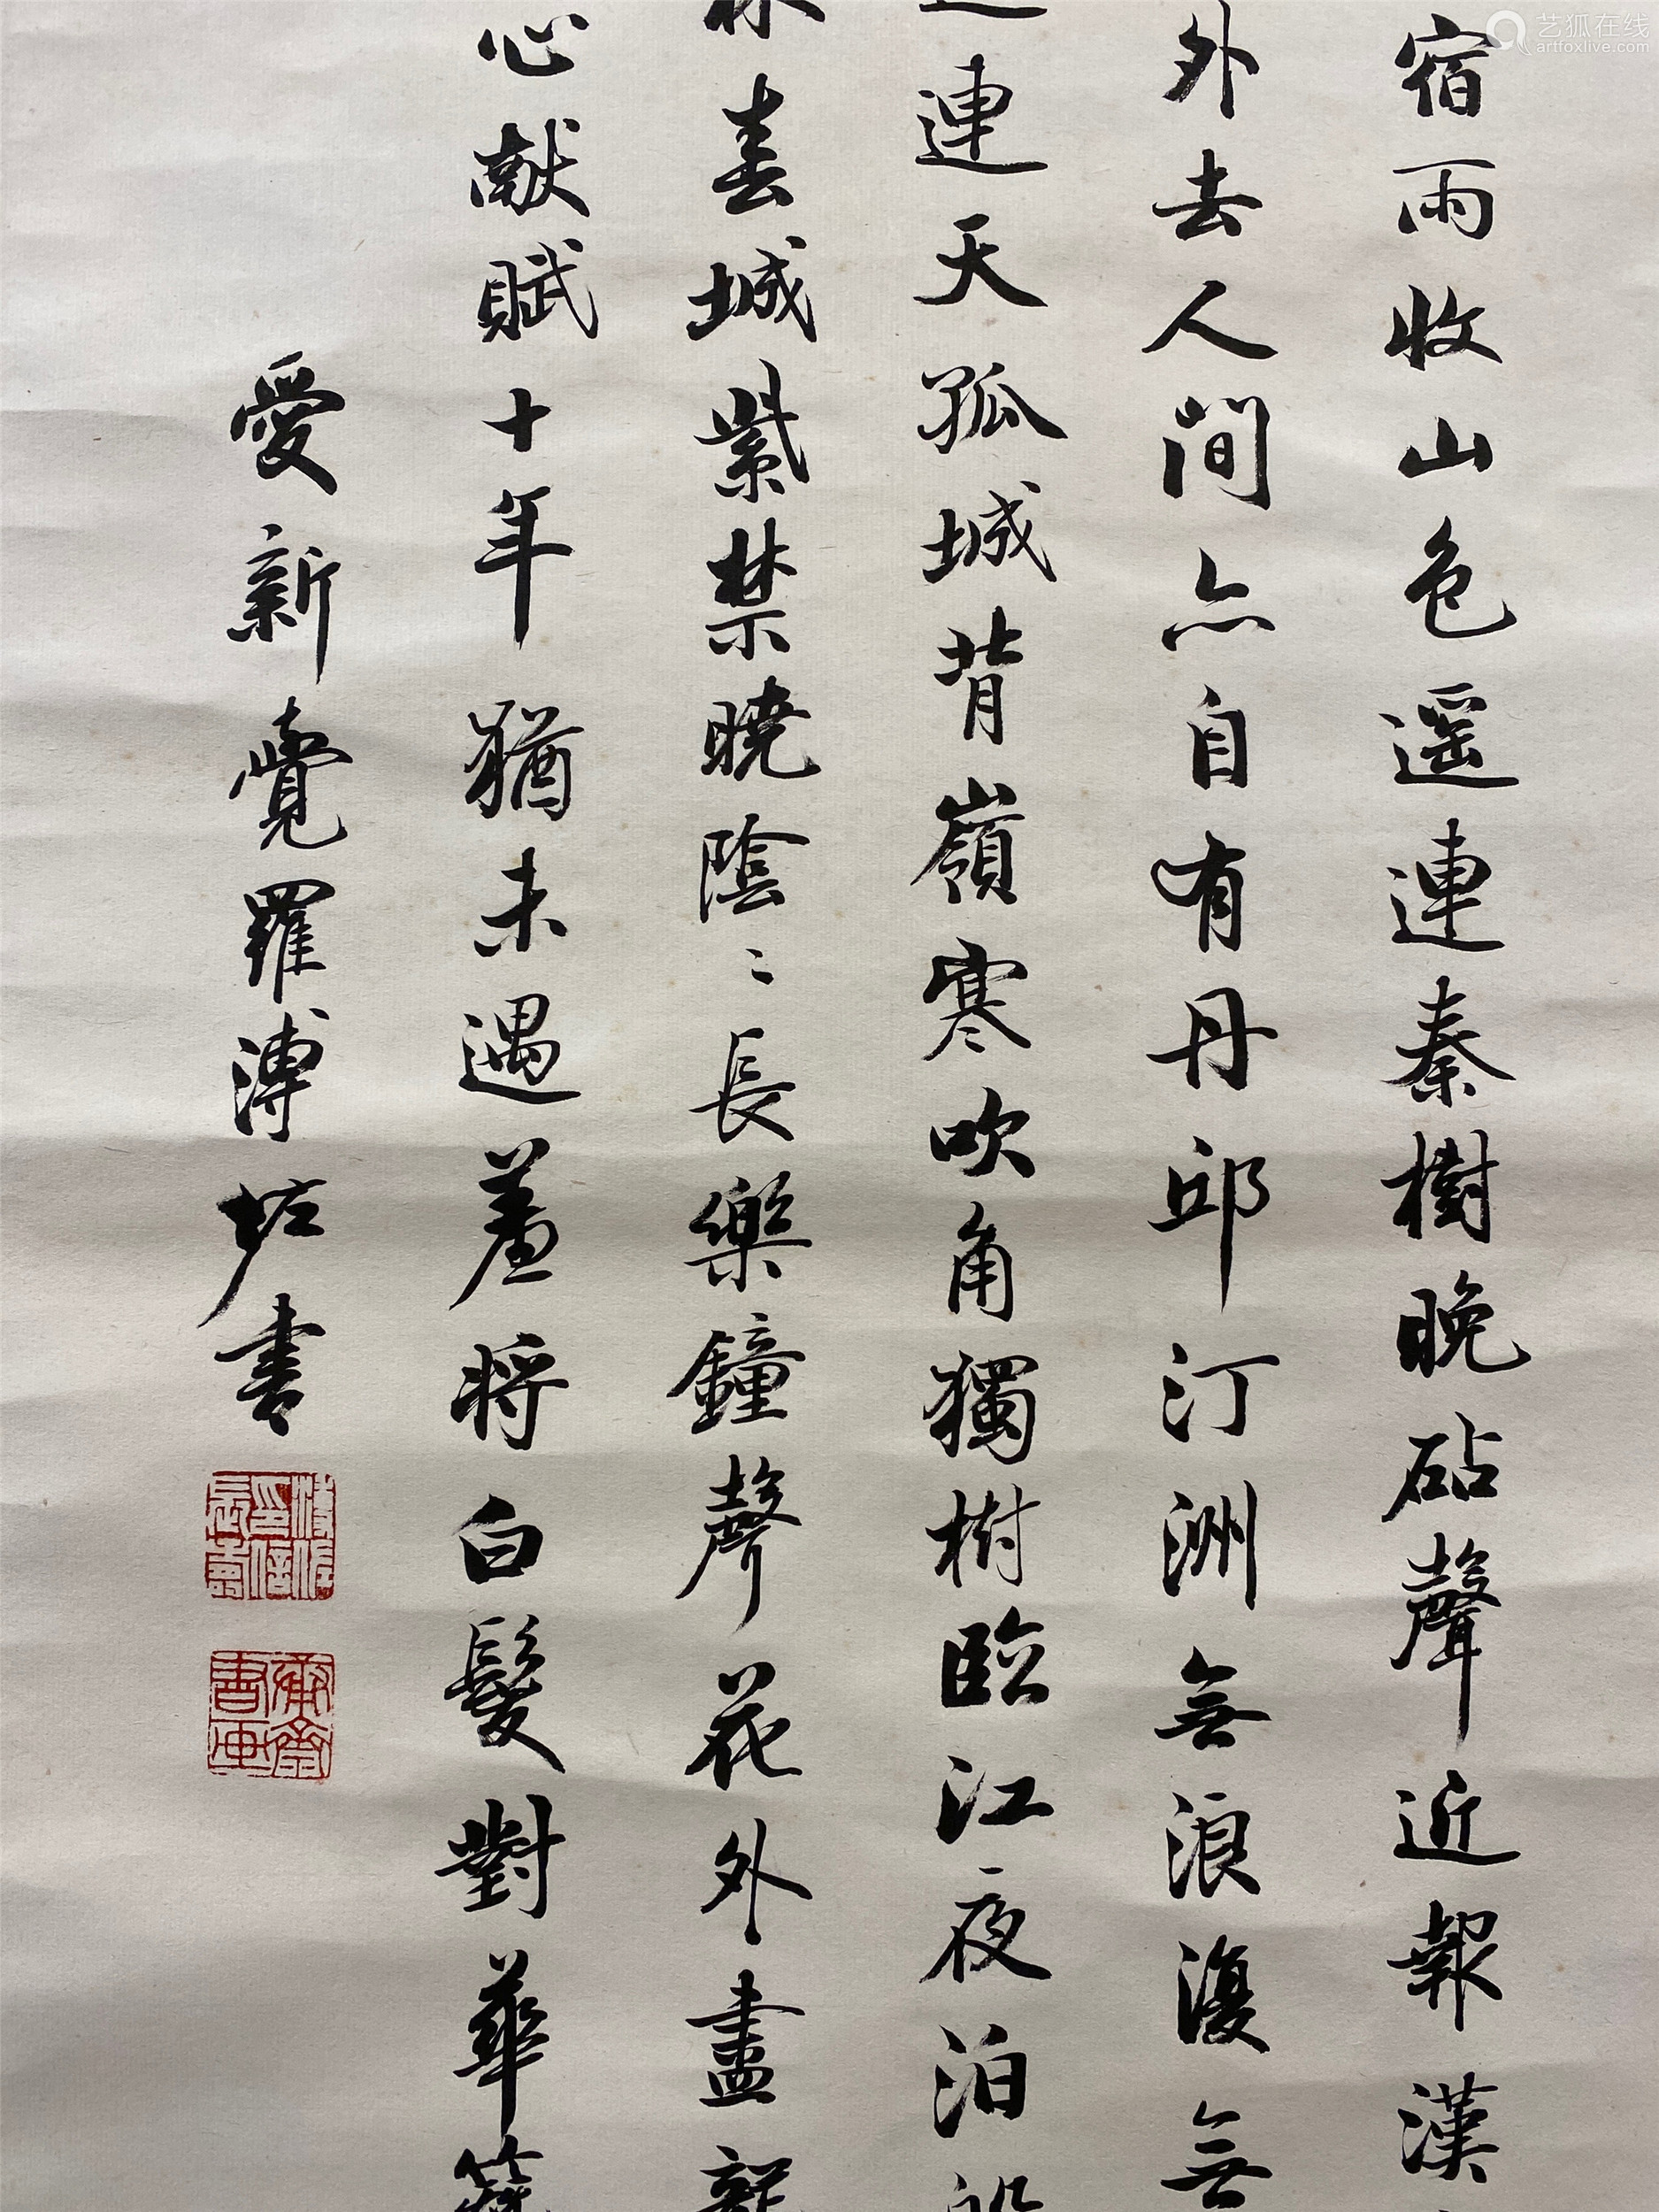 宿雨收山色遥連秦樹晚砧聲近報漢
外去人間亦自有丹邱汀洲無浪復無
連天孤城背嶺寒吹角獨樹臨江夜泊船
林春城紫禁曉陰〻長樂鐘聲花外盡龍
心献賦十年猶未遇羞將白髮對華簪
愛新覺羅溥
書
書画
艺狐在线
artfoxlive.com